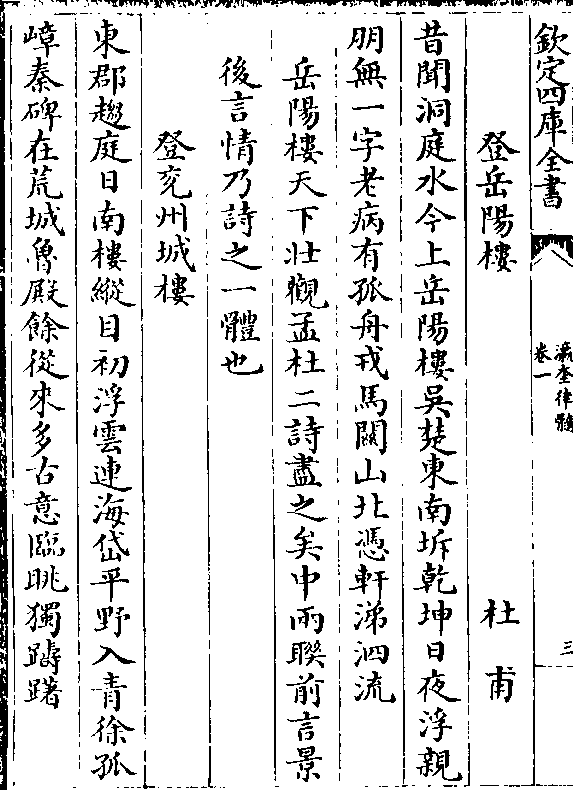 欽定四庫全書
瀛奎律髓
卷一
三
登岳陽樓
杜甫
昔聞洞庭水今上岳陽樓吳楚東南坼乾坤日夜浮親
朋無一字老病有孤舟戎馬關山北憑軒涕泗流
岳陽樓天下壯觀孟杜二詩盡之矣中兩聯前言景
後言情乃詩之一體也
登兖州城樓
東郡趨庭日南樓縱目初浮雲連海岱平野入青徐孤
嶂秦碑在荒城魯殿餘從來多古意臨眺獨躊躇